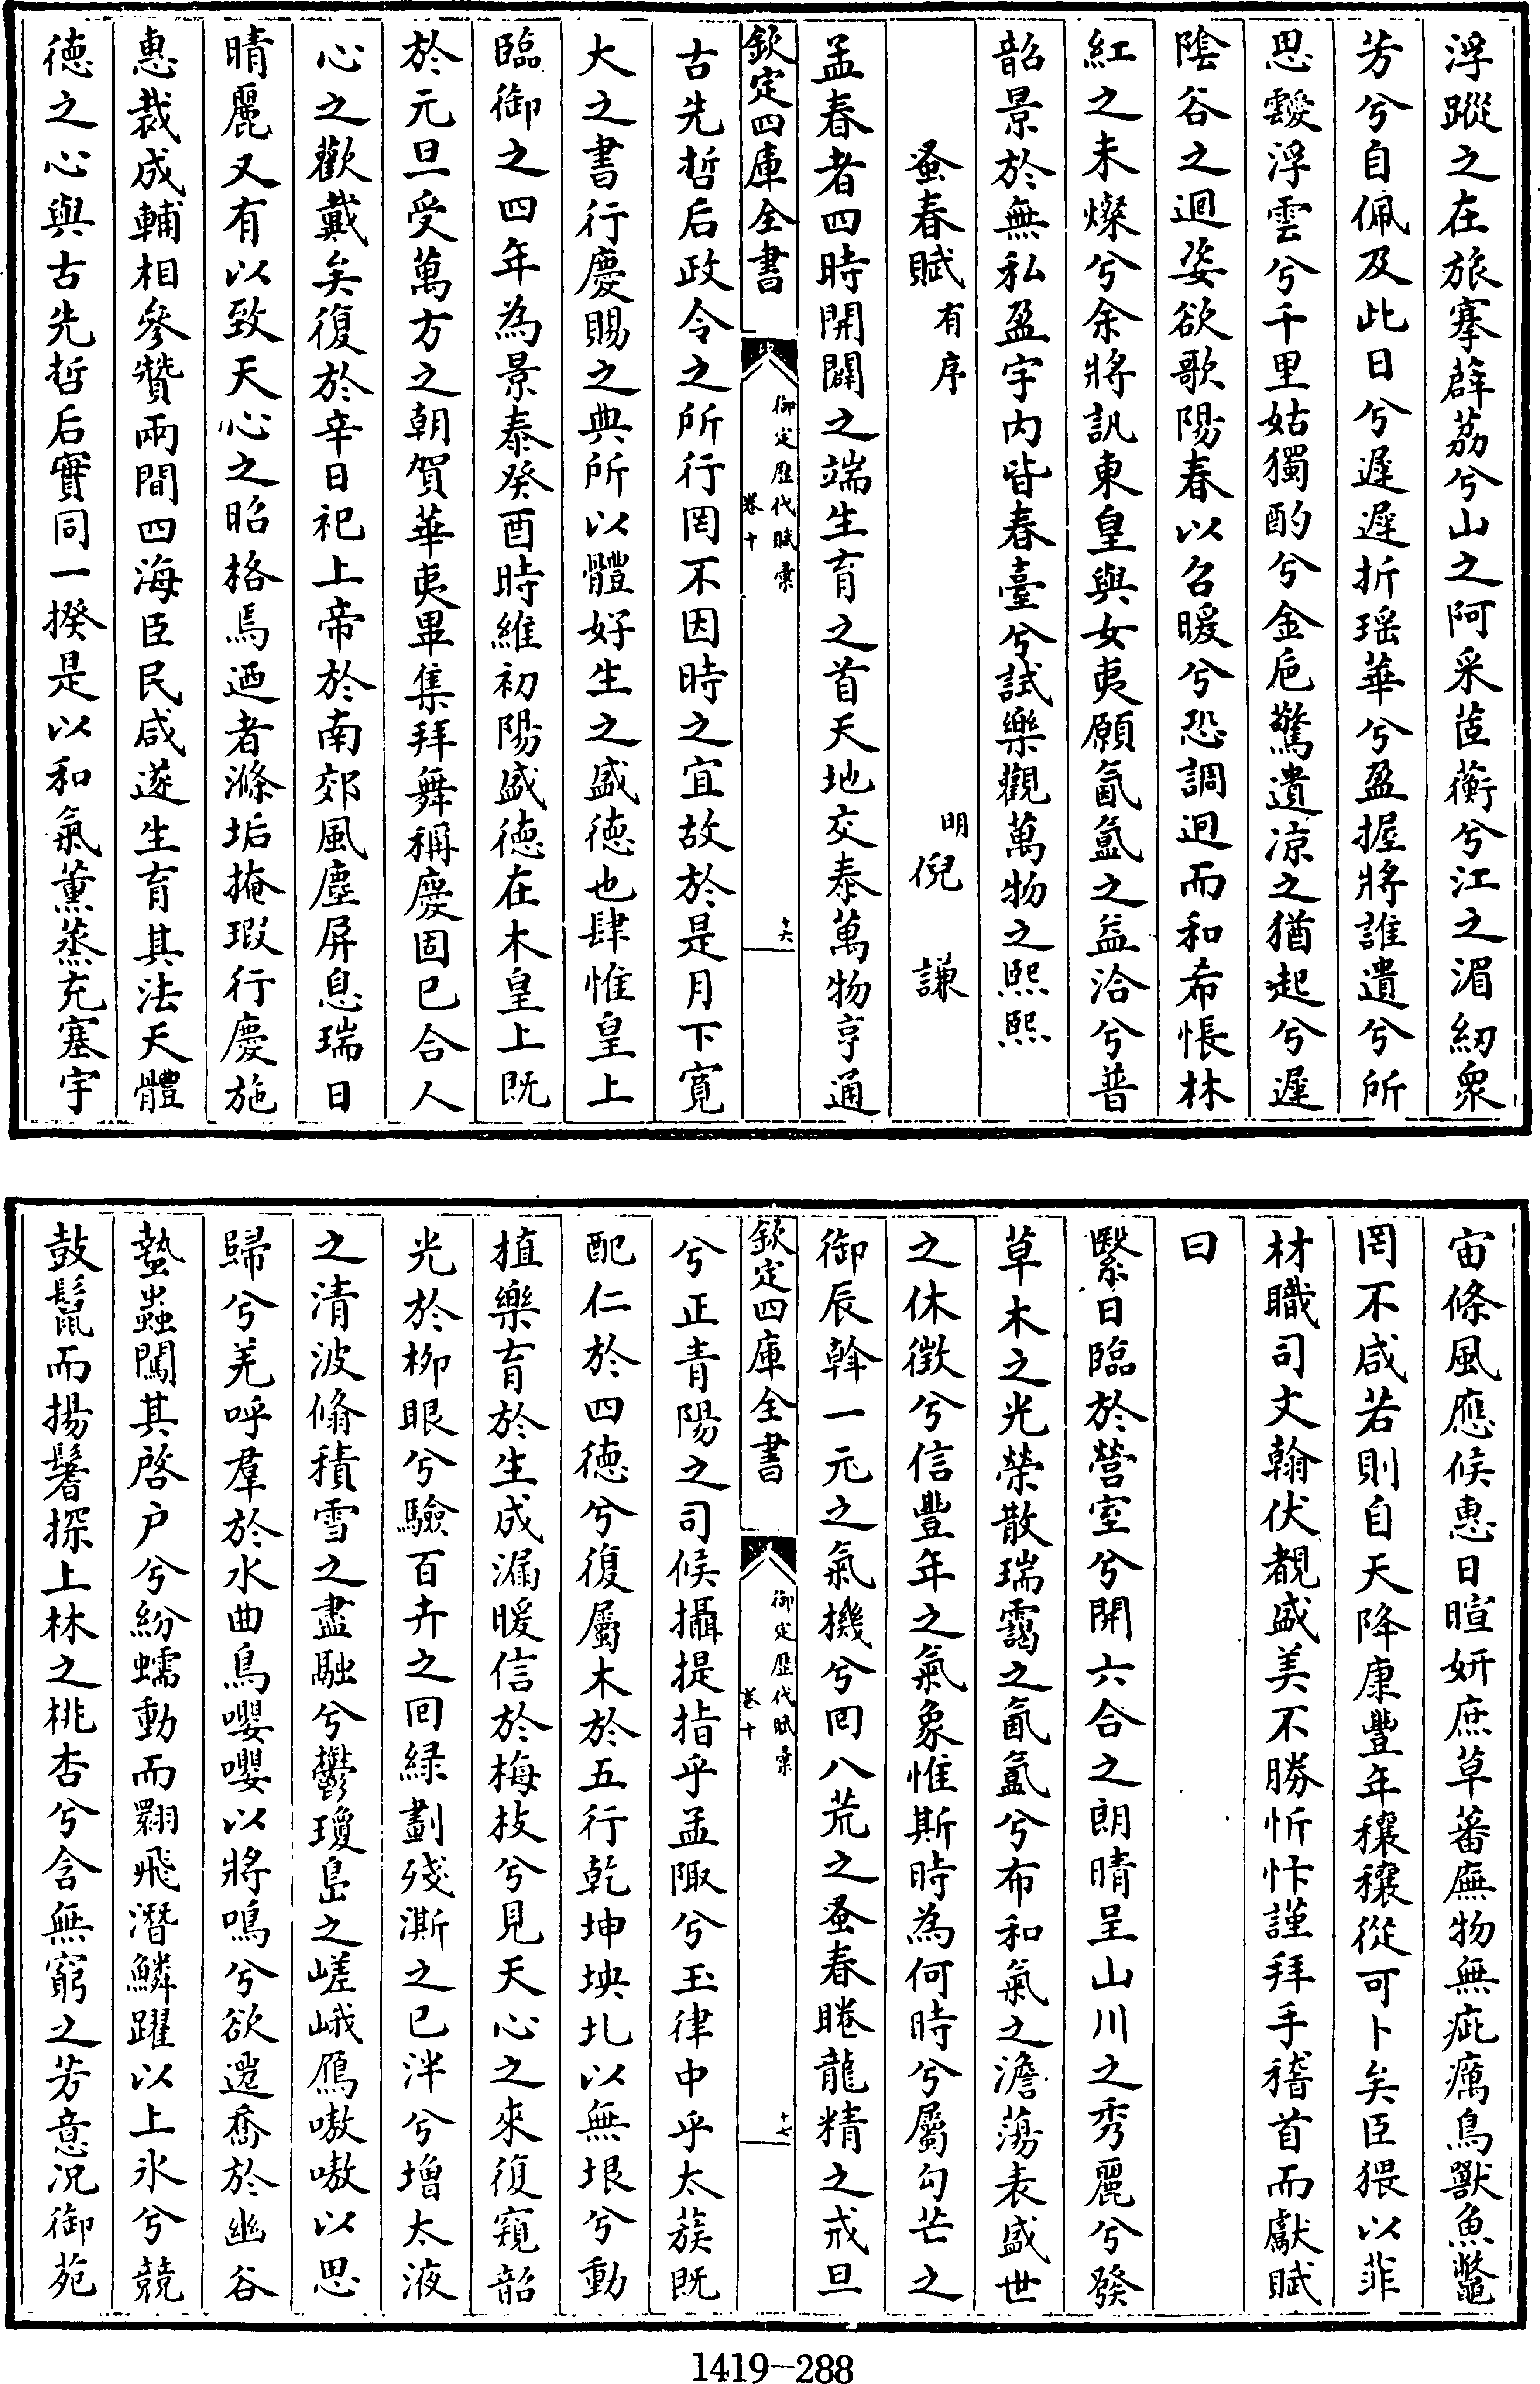 浮蹤之在旅搴薜荔兮山之阿采茝蘅兮江之湄紉衆
芳兮自佩及此日兮遲遲折瑶華兮盈握將誰遺兮所
思靉浮雲兮千里姑獨酌兮金卮驚遺凉之猶起兮遲
陰谷之迴姿欲歌陽春以召暖兮恐調迥而和希悵林
紅之未燦兮余將訊東皇與女夷願氤氳之益洽兮普
韶景於無私盈宇内皆春臺兮試樂觀萬物之熙熙
蚤春賦 有序 明 倪謙
孟春者四時開闢之端生育之首天地交泰萬物亨通
欽定四庫全書
御定歴代賦彙
卷十
十六
古先哲后政令之所行罔不因時之宜故於是月下寛
大之書行慶賜之典所以體好生之盛徳也肆惟皇上
臨御之四年為景泰癸酉時維初陽盛徳在木皇上既
於元旦受萬方之朝賀華夷畢集拜舞稱慶固已合人
心之歡戴矣復於辛日祀上帝於南郊風塵屏息瑞日
晴麗又有以致天心之昭格焉廼者滌垢掩瑕行慶施
惠裁成輔相參贊兩間四海臣民咸遂生育其法天體
徳之心與古先哲后實同一揆是以和氣薰蒸充塞宇
宙條風應候惠日暄妍庶草蕃廡物無疵癘鳥獸魚鼈
罔不咸若則自天降康豐年穰穰從可卜矣臣猥以菲
材職司文翰伏覩盛美不勝忻忭謹拜手稽首而獻賦
曰
繄日臨於營室兮開六合之朗晴呈山川之秀麗兮發
草木之光榮散瑞靄之氤氳兮布和氣之澹蕩表盛世
之休徴兮信豐年之氣象惟斯時為何時兮屬勾芒之
御辰斡一元之氣機兮囘八荒之蚤春睠龍精之戒旦
欽定四庫全書
御定歴代賦彙
卷十
十七
兮正青陽之司候攝提指乎孟陬兮玉律中乎太蔟既
配仁於四徳兮復屬木於五行乾坤坱圠以無垠兮動
植樂育於生成漏暖信於梅枝兮見天心之來復窺韶
光於栁眼兮驗百卉之囘緑劃殘澌之已泮兮增太液
之清波翛積雪之盡融兮鬱瓊島之嵯峨鴈嗷嗷以思
歸兮羌呼羣於水曲鳥嚶嚶以將鳴兮欲遷喬於幽谷
蟄蟲闖其啓户兮紛蠕動而翾飛潛鱗躍以上氷兮競
鼓鬣而揚鬐探上林之桃杏兮含無窮之芳意况御苑
1419-288